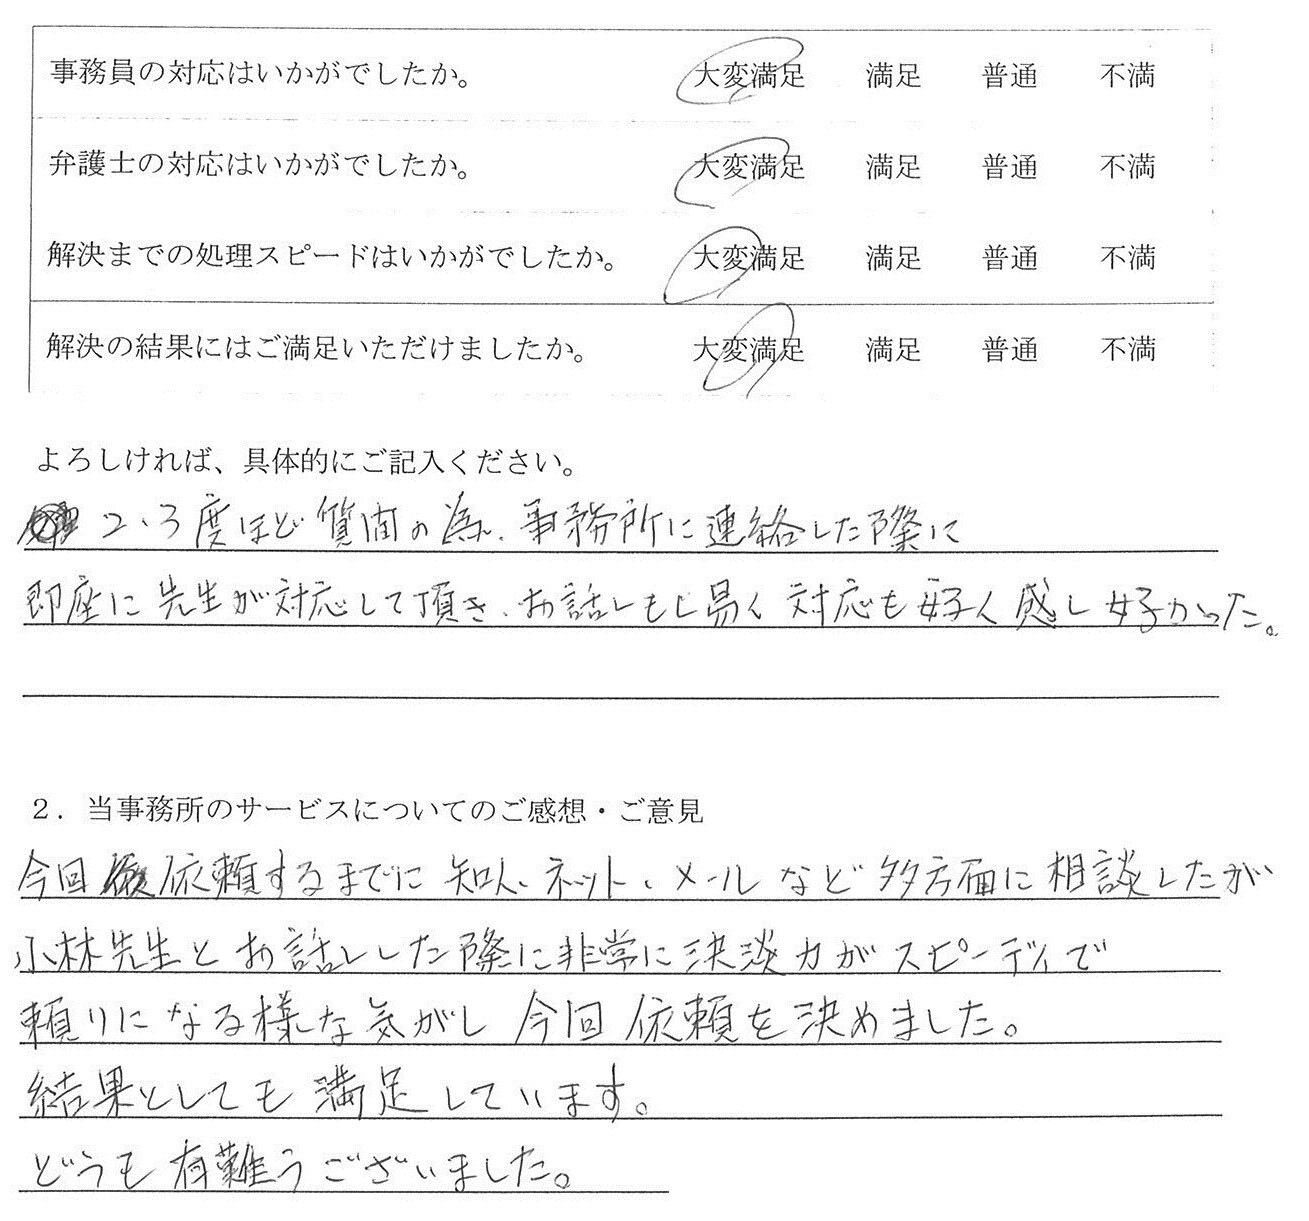 事務員の対応はいかがでしたか。 大変満足 満足 普通 不満
弁護士の対応はいかがでしたか。 大変満足 満足 普通 不満
解決までの処理スピードはいかがでしたか。 大変満足 満足 普通 不満
解決の結果にはご満足いただけましたか。 大変満足 満足 普通 不満
よろしければ、具体的にご記入ください。
2、3度ほど質問の為、事務所に連絡した際に
即座に先生が対応して頂き、お話しもし易く対応も好く感じ好かった。
2．当事務所のサービスについてのご感想・ご意見
今回依頼するまでに知人、ネット、メールなど多方面に相談したが
小林先生とお話しした際に非常に決談力がスピーディで
頼りになる様な気がし今回依頼を決めました。
結果としても満足しています。
どうも有難うございました。